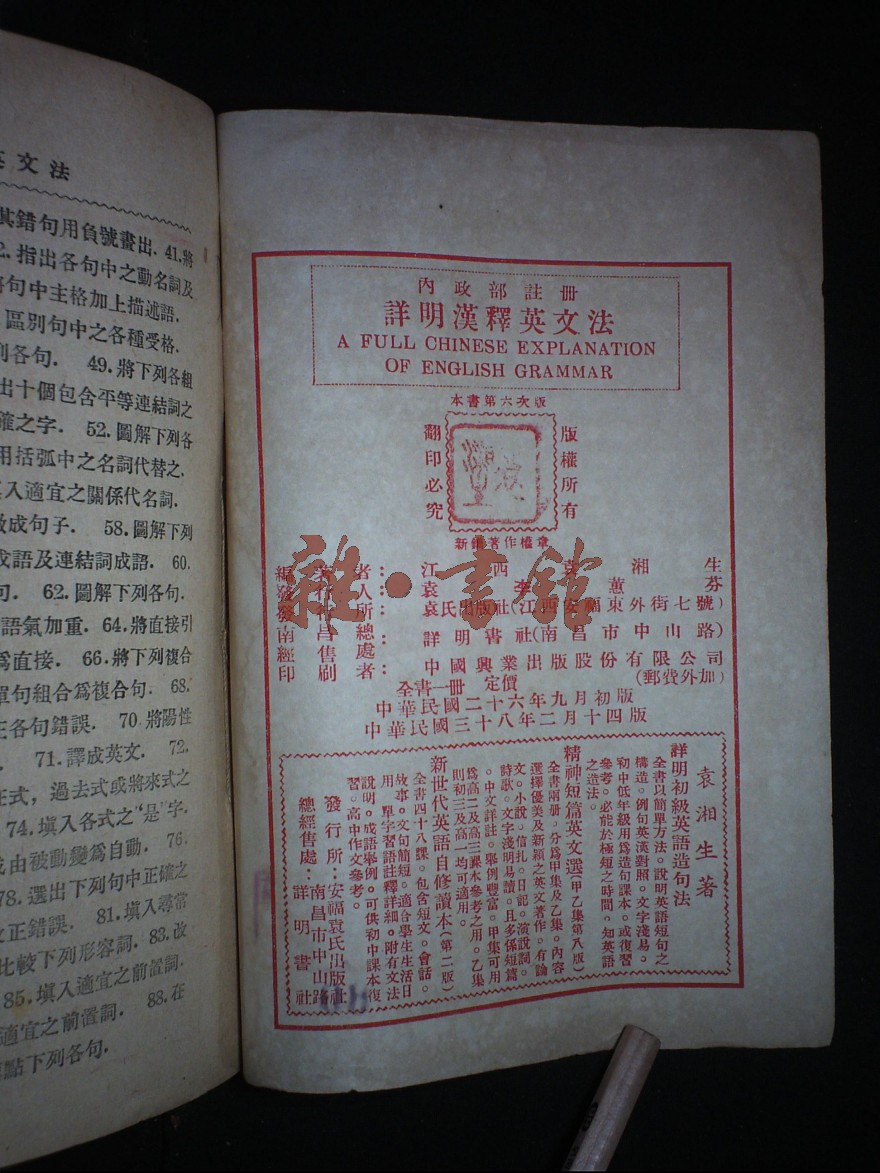 英文法
其錯句用負號畫出. 41.將
2. 指出各句中之動名詞及
句中主格加上描述語.
區別句中之各種受格.
列各句. 49.將下列各組
出十個包含平等連結詞之
確之字. 52.圖解下列各
用括弧中之名詞代替之.
填入適宜之關係代名詞.
改成句子. 58.圖解下列
成語及連結詞成語. 60.
句. 62.圖解下列各句.
語氣加重. 64.將直接引
爲直接. 66.將下列複合
單句組合爲複合句. 68.
正各句錯誤. 70.將陽性
71.譯成英文. 72.
在式, 過去式或將來式之
74.填入各式之“是”字.
由被動變爲自動. 76.
78.選出下列句中正確之
正錯誤. 81.填入尋常
比較下列形容詞. 83.改
85.填入適宜之前置詞.
適宜之前置詞. 88.在
點下列各句.
內政部註册
詳明漢釋英文法
A FULL CHINESE EXPLANATION
OF ENGLISH GRAMMAR
本書第六次版
版權所有
翻印必究
著作權章
雜·書館
江西袁湘生
袁李蕙芬
袁氏出版社(江西安福東外街七號)
詳明書社(南昌市中山路)
印刷者:中國興業出版股份有限公司
全書一冊 定價 (郵費外加)
中華民國二十六年九月初版
中華民國三十八年二月十四版
袁湘生著
詳明初級英語造句法
全書以簡單方法。說明英語短句之
構造。例句英漢對照。文字淺易。
初中低年級用爲造句課本。或復習
參考。必能於極短之時間。知英語
之造法。
精神短篇英文選(甲乙集第八版)
全書兩册。分爲甲集及乙集。內容
選擇優美及新穎之英文著作。有論
文。小說。信扎。日記。演說詞。
詩歌。文字淺明易讀。且多係短篇
。中文詳註。舉例豐富。甲集可用
爲高二及高三課本參考之用。乙集
則初三及高一均可適用。
新世代英語自修讀本(第二版)
全書四十八課。包含短文。會話。
故事。文句簡短。適合學生生活日
用。單字習語註釋詳細。附有文法
說明。成語舉例。可供初中課本復
習。高中作文參考。
發行所:安福袁氏出版社
總經售處:南昌市中山路詳明書社